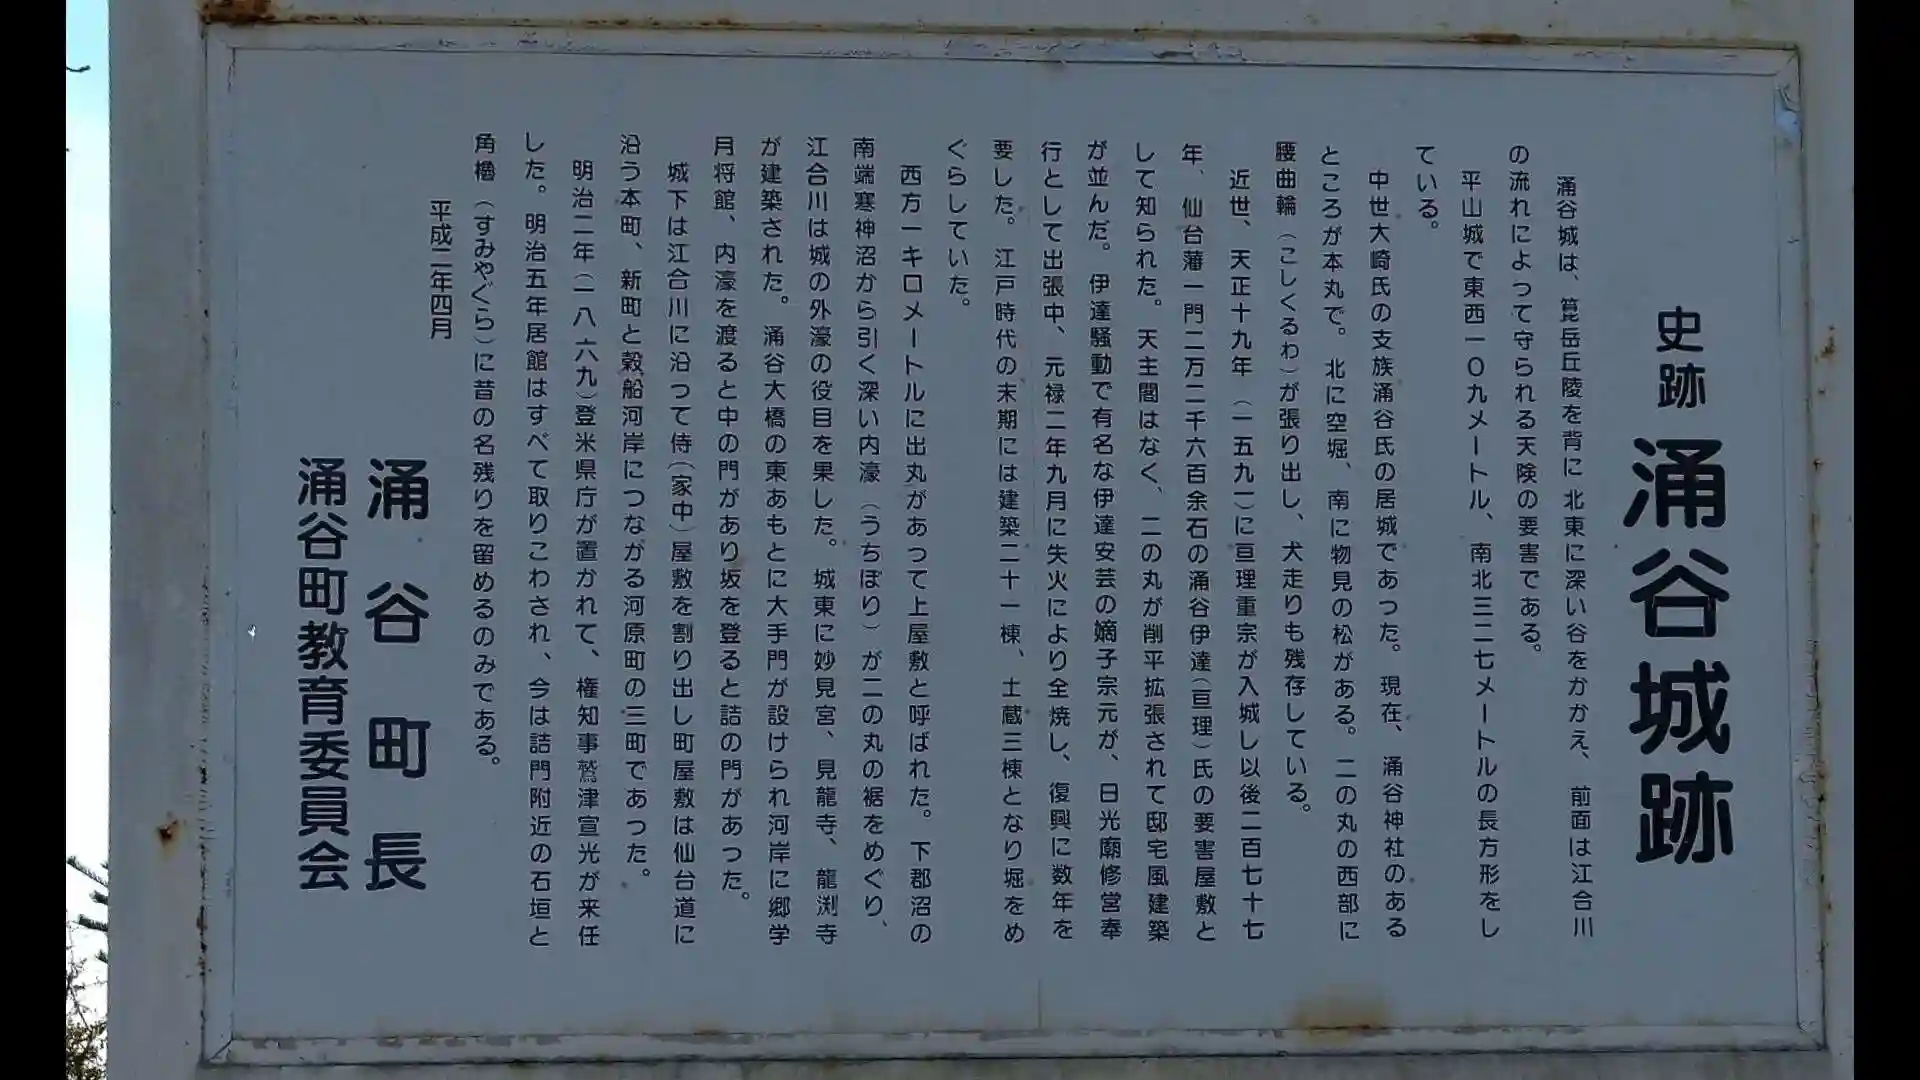 史跡 涌谷城跡
涌谷城は、箟岳丘陵を背に北東に深い谷をかかえ、前面は江合川
の流れによって守られる天険の要害である。
平山城で東西一〇九メートル、南北三二七メートルの長方形をし
ている。
中世大崎氏の支族涌谷氏の居城であった。現在、涌谷神社のある
ところが本丸で。北に空堀、南に物見の松がある。二の丸の西部に
腰曲輪（こしくるわ）が張り出し、犬走りも残存している。
近世、天正十九年（一五九一）に亘理重宗が入城し以後二百七十七
年、仙台藩一門二万二千六百余石の涌谷伊達（亘理）氏の要害屋敷と
して知られた。天主閣はなく、二の丸が削平拡張されて邸宅風建築
が並んだ。伊達騒動で有名な伊達安芸の嫡子宗元が、日光廟修営奉
行として出張中、元禄二年九月に失火により全焼し、復興に数年を
要した。江戸時代の末期には建築二十一棟、土蔵三棟となり堀をめ
ぐらしていた。
西方一キロメートルに出丸があって上屋敷と呼ばれた。下郡沼の
南端寒神沼から引く深い内濠（うちぼり）が二の丸の裾をめぐり、
江合川は城の外濠の役目を果した。城東に妙見宮、見龍寺、龍渕寺
が建築された。涌谷大橋の東あもとに大手門が設けられ河岸に郷学
月将館、内濠を渡ると中の門があり坂を登ると詰の門があった。
城下は江合川に沿って侍（家中）屋敷を割り出し町屋敷は仙台道に
沿う本町、新町と穀船河岸につながる河原町の三町であった。
明治二年（一八六九）登米県庁が置かれて、権知事鷲津宣光が来任
した。明治五年居館はすべて取りこわされ、今は詰門附近の石垣と
角櫓（すみやぐら）に昔の名残りを留めるのみである。
平成二年四月
涌谷町長
涌谷町教育委員会